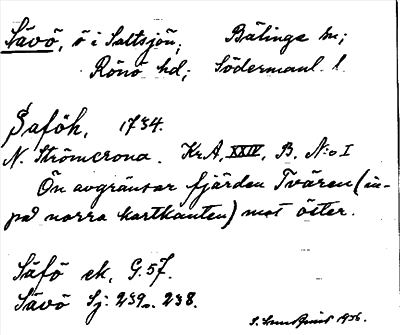 Sävö, ö i Saltsjön; Bälinge sn;
Rönö hd; Södermanl. l.
Saföh, 1734.
N. Strömcrona. Kr.A, XXIV, B. N:o I
Ön avgränsar fjärden Tvären (in-
på norra kartkanten) mot öster.
Säfö ek. G. 57.
Sävö Sj: 239, 238.
S. 1936.